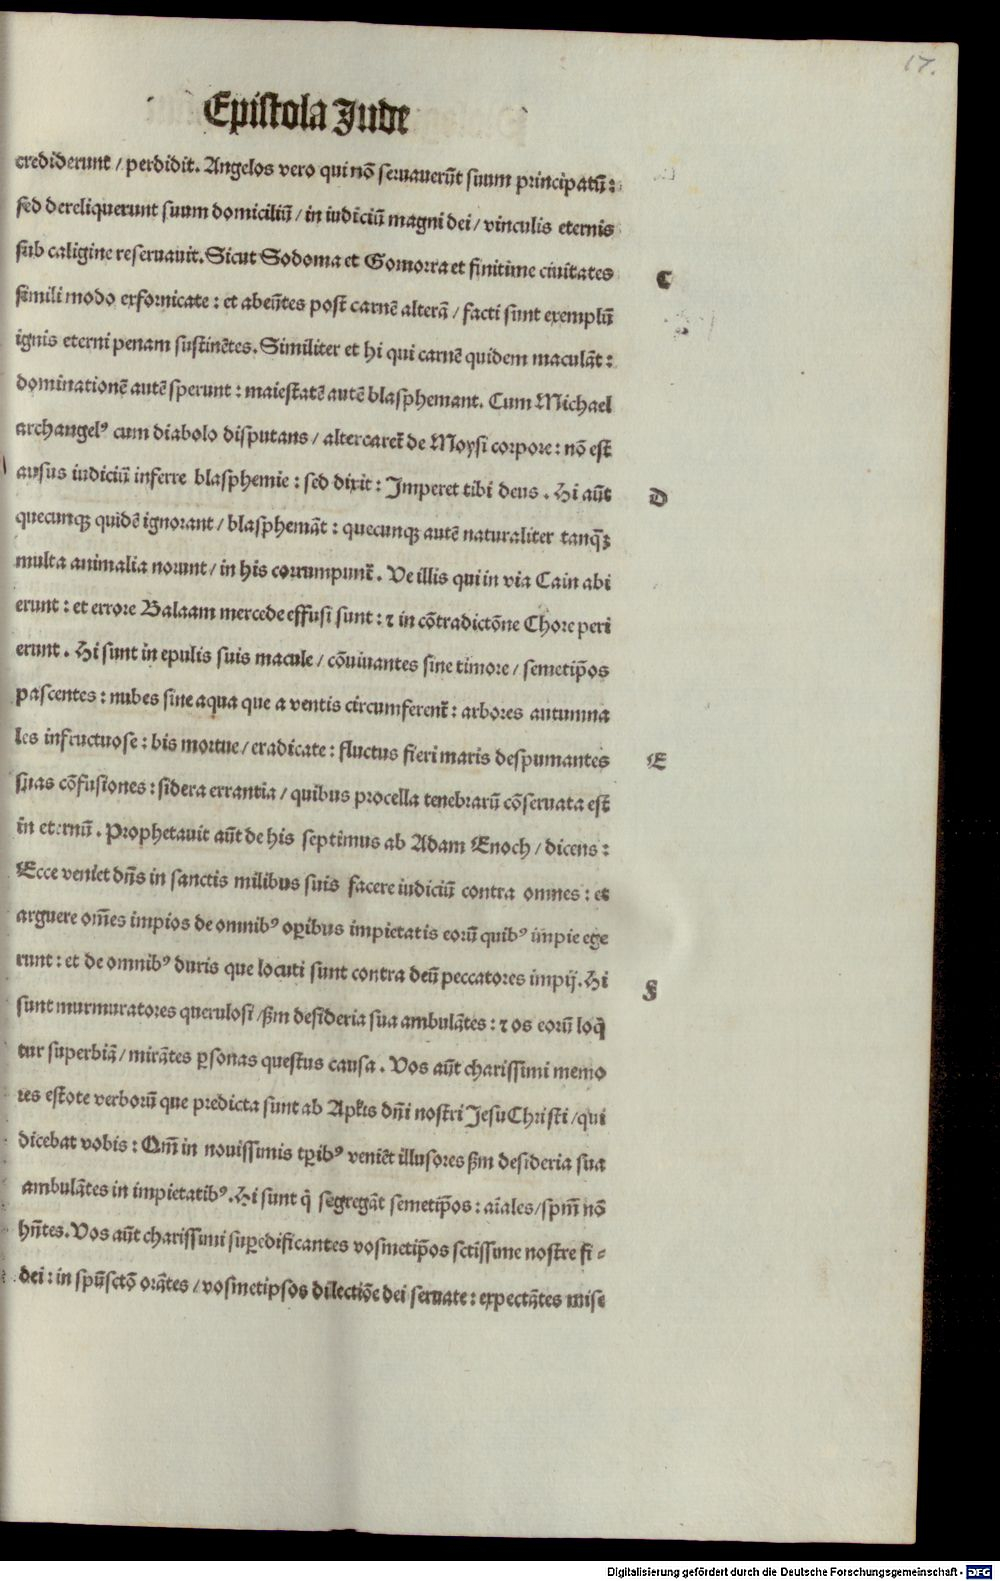 17.
Epistola Jude
crediderunt / perdidit. Angelos vero qui nõ seruauerũt suum principatũ:
sed dereliquerunt suum domiciliũ / in iudiciũ magni dei / vinculis eternis
sub caligine reseruauit. Sicut Sodoma et Gomorra et finitime ciuitates
C
simili modo exfornicate: et abeũtes post carnẽ alterã / facti sunt exemplũ
ignis eterni penam sustinẽtes. Similiter et hi qui carnẽ quidem maculãt:
dominationẽ autẽ sperunt: maiestatẽ autẽ blasphemant. Cum Michael
archangelꝰ cum diabolo disputans / altercaret̃ de Moysi corpore: nõ est
ausus iudiciũ inferre blasphemie: sed dixit: Imperet tibi deus. Hi aũt
D
quecunqꝫ quidẽ ignorant / blasphemãt: quecunqꝫ autẽ naturaliter tanq̃ꝫ
multa animalia norunt / in his corrumpunt̃. Ve illis qui in via Cain abi
erunt: et errore Balaam mercede effusi sunt: ⁊ in cõtradictõne Chore peri
erunt. Hi sunt in epulis suis macule / cõuiuantes sine timore / semetip̃os
pascentes: nubes sine aqua que a ventis circumferent̃: arbores autumna
les infructuose: bis mortue / eradicate: fluctus fieri maris despumantes
E
suas cõfusiones: sidera errantia / quibus procella tenebrarũ cõseruata est
in eternũ. Prophetauit aũt de his septimus ab Adam Enoch / dicens:
Ecce veniet dñs in sanctis milibus suis facere iudiciũ contra omnes: et
arguere om̃es impios de omnibꝰ oꝑibus impietatis eorũ quibꝰ impie ege
runt: et de omnibꝰ duris que locuti sunt contra deũ peccatores impij. Hi
F
sunt murmuratores querulosi / ẞm desideria sua ambulãtes: ⁊ os eorũ loq̃
tur superbiã / mirãtes ꝑsonas questus causa. Vos aũt charissimi memo
res estote verborũ que predicta sunt ab Apłis dñi nostri Jesu Christi / qui
dicebat vobis: Qm̃ in nouissimis tꝑibꝰ veniẽt illusores ẞm desideria sua
ambulãtes in impietatibꝰ. Hi sunt q̃ segregãt semetip̃os: aĩales / spm̃ nõ
hñtes. Vos aũt charissimi suꝑedificantes vosmetip̃os sctissime nostre fi-
dei: in spũsctõ orãtes / vosmetipsos dilectiõe dei seruate: expectãtes mise
Digitalisierung gefördert durch die Deutsche Forschungsgemeinschaft - DFG